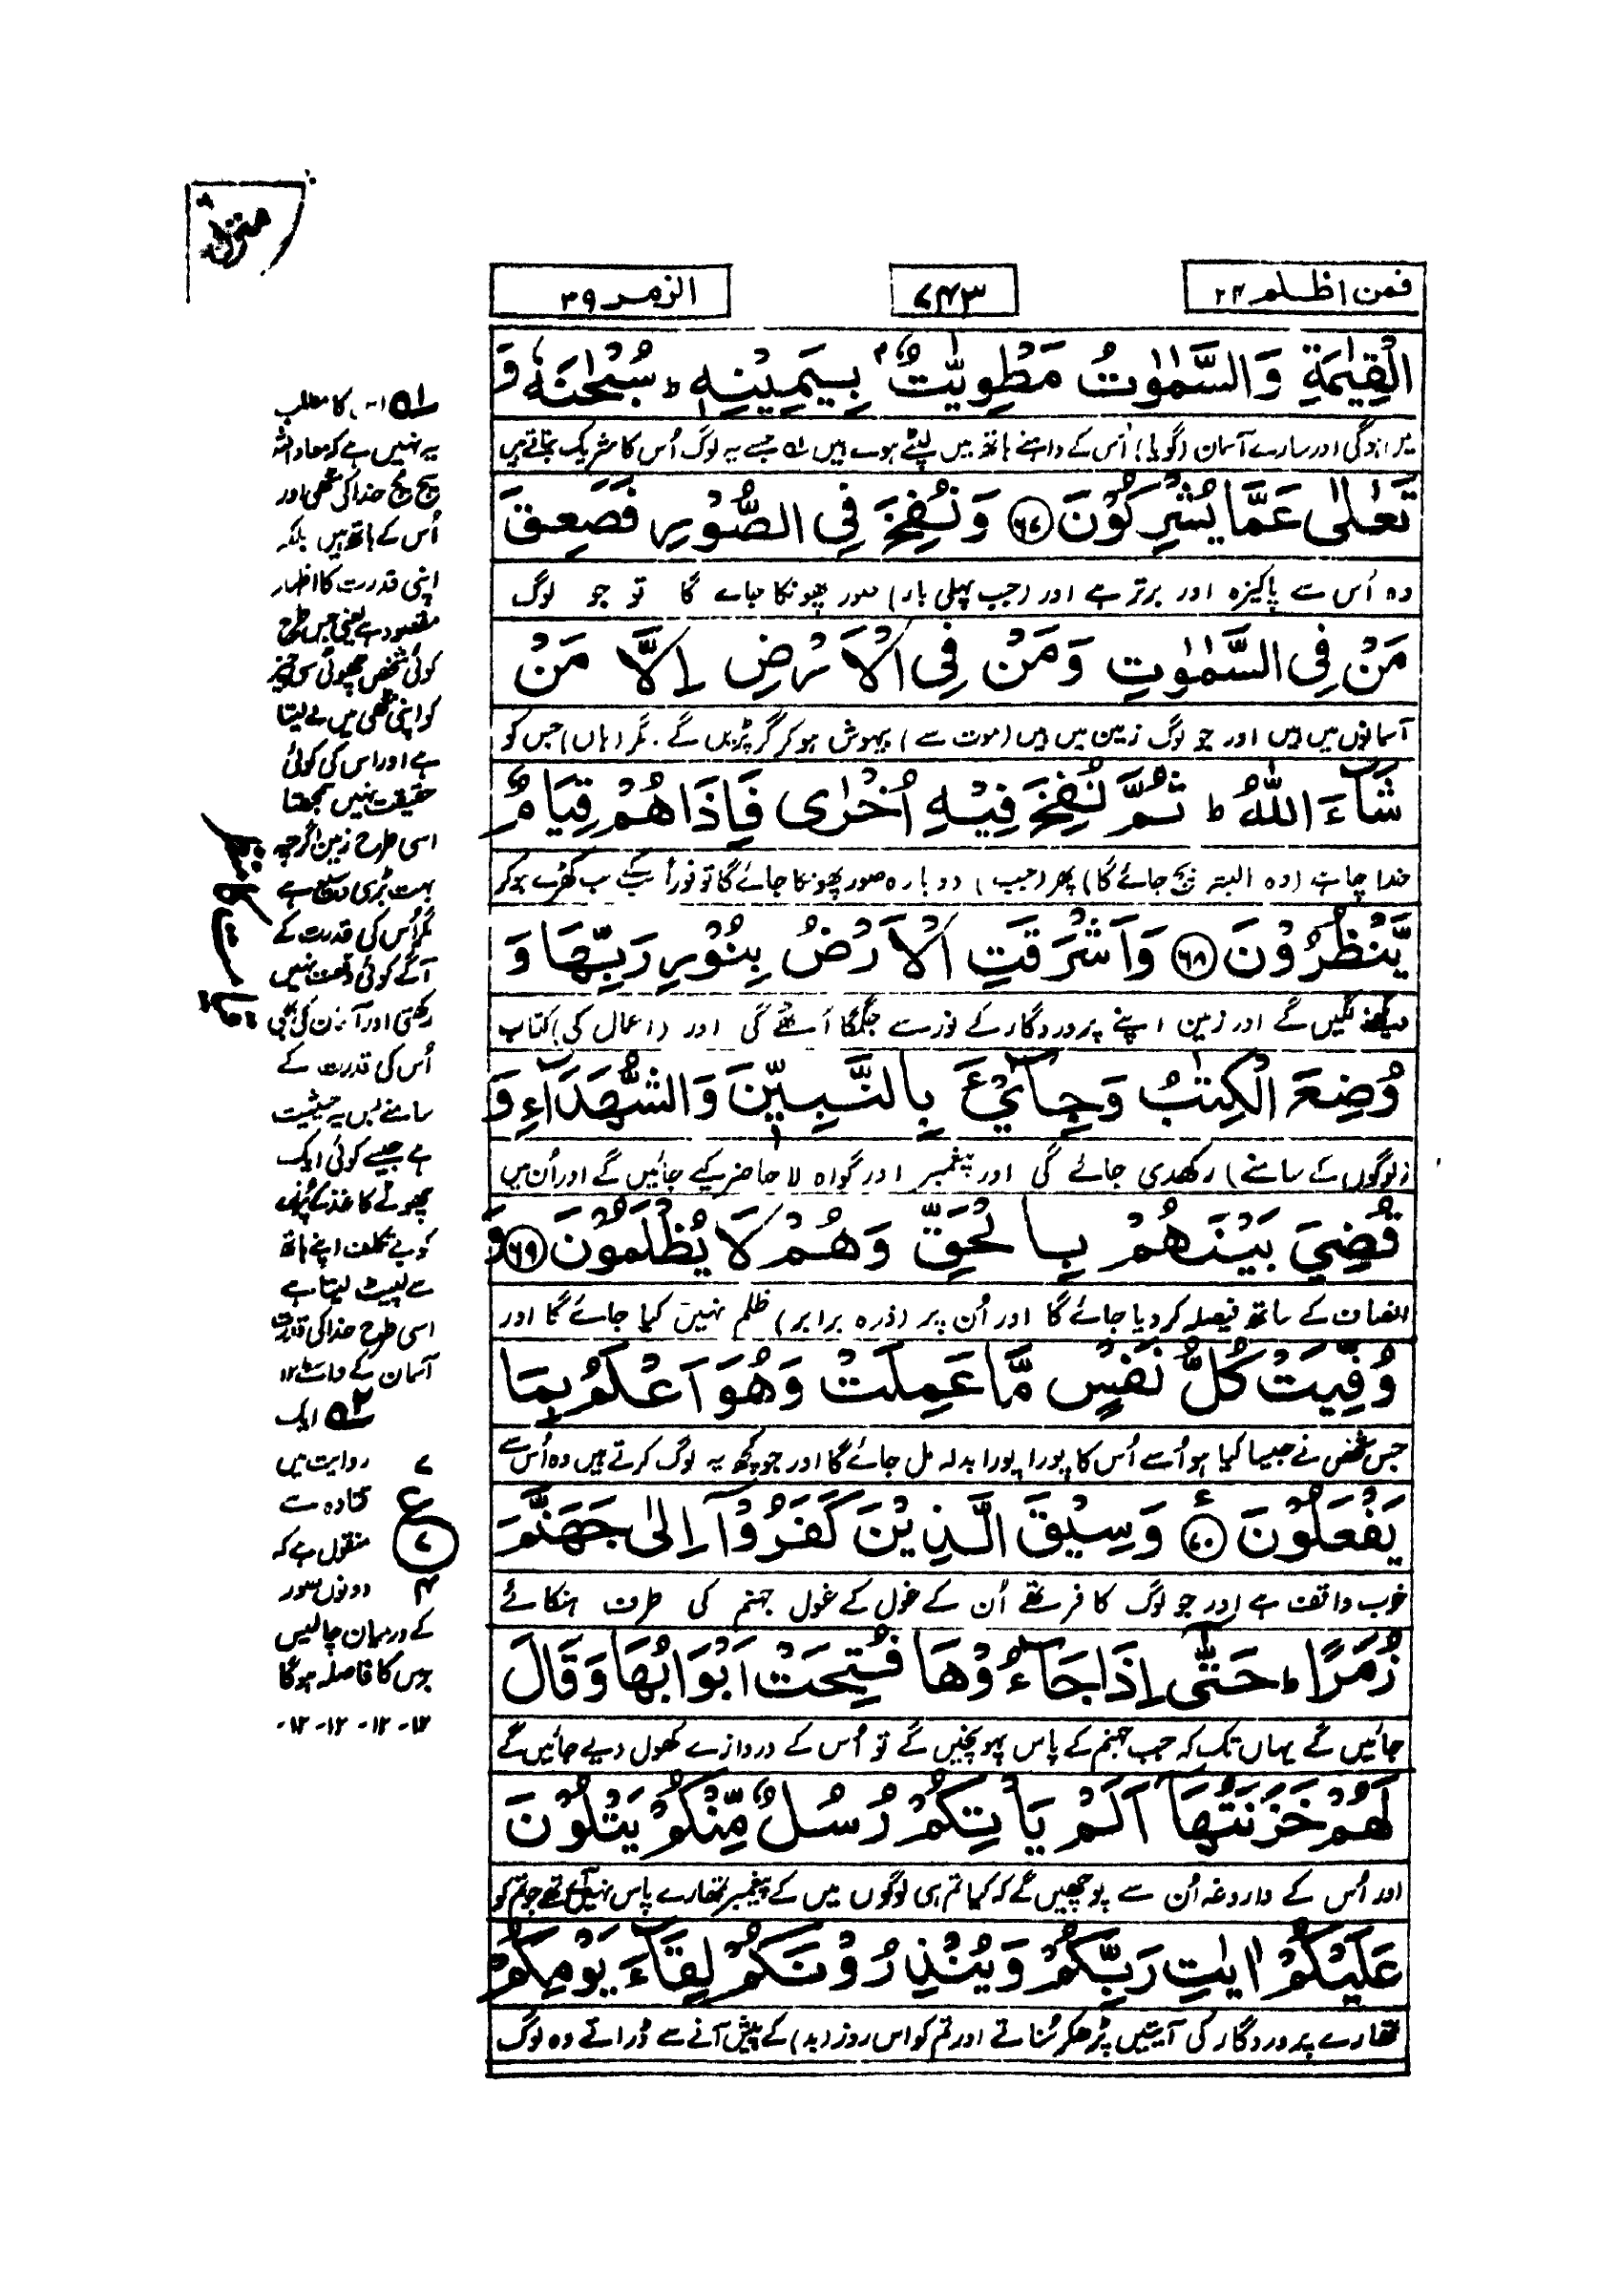 فمن اظلم ۲۴
۷۴۳
الزمر ۳۹
الْقِيٰمَةِ وَالسَّمٰوٰتُ مَطْوِيّٰتٌۢ بِيَمِيْنِهٖ ؕ سُبْحٰنَهٗ وَ
میں ہوگی اور سارے آسمان (گویا) اُس کے داہنے ہاتھ میں لپٹے ہوے ہیں ۱؎ جسے یہ لوگ اُس کا شریک بتاتے ہیں
تَعٰلٰى عَمَّا يُشْرِكُوْنَ ﴿۶۷﴾ وَنُفِخَ فِى الصُّوْرِ فَصَعِقَ
وہ اُس سے پاکیزہ اور برتر ہے اور (جب پہلی بار) صور پھونکا جاے گا تو جو لوگ
مَنْ فِى السَّمٰوٰتِ وَمَنْ فِى الْاَرْضِ اِلَّا مَنْ
آسمانوں میں ہیں اور جو لوگ زمین میں ہیں (موت سے) بیہوش ہو کر گر پڑیں گے۔ مگر (ہاں) جس کو
شَآءَ اللّٰهُ ؕ ثُمَّ نُفِخَ فِيْهِ اُخْرٰى فَاِذَا هُمْ قِيَامٌ
خدا چاہے (وہ البتہ بچ جائے گا) پھر (جب) دوبارہ صور پھونکا جائے گا تو فوراً سب کے سب کھڑے ہو کر
يَّنْظُرُوْنَ ﴿۶۸﴾ وَاَشْرَقَتِ الْاَرْضُ بِنُوْرِ رَبِّهَا وَ
دیکھنے لگیں گے اور زمین اپنے پروردگار کے نور سے جگمگا اُٹھے گی اور (اعمال کی) کتاب
وُضِعَ الْكِتٰبُ وَجِآىْءَ بِالنَّبِيّٖنَ وَالشُّهَدَآءِ وَ
(لوگوں کے سامنے) رکھدی جائے گی اور پیغمبر اور گواہ لا حاضر کیے جائیں گے اور اُن میں
قُضِيَ بَيْنَهُمْ بِالْحَقِّ وَهُمْ لَا يُظْلَمُوْنَ ﴿۶۹﴾ وَ
انصاف کے ساتھ فیصلہ کر دیا جائے گا اور اُن پر (ذرہ برابر) ظلم نہیں کیا جائے گا اور
وُفِّيَتْ كُلُّ نَفْسٍ مَّا عَمِلَتْ وَهُوَ اَعْلَمُ بِمَا
جس شخص نے جیسا کیا ہو اُسے اُس کا پورا پورا بدلہ مل جائے گا اور جو کچھ یہ لوگ کرتے ہیں وہ اُس سے
يَفْعَلُوْنَ ﴿۷۰﴾ وَسِيْقَ الَّذِيْنَ كَفَرُوْۤا اِلٰى جَهَنَّمَ
خوب واقف ہے اور جو لوگ کافر تھے اُن کے غول کے غول جہنم کی طرف ہنکائے
زُمَرًا ؕ حَتّٰۤى اِذَا جَآءُوْهَا فُتِحَتْ اَبْوَابُهَا وَقَالَ
جائیں گے یہاں تک کہ جب جہنم کے پاس پہونچیں گے تو اُس کے دروازے کھول دیے جائیں گے
لَهُمْ خَزَنَتُهَاۤ اَلَمْ يَاْتِكُمْ رُسُلٌ مِّنْكُمْ يَتْلُوْنَ
اور اُس کے داروغہ اُن سے پوچھیں گے کہ کیا تم ہی لوگوں میں کے پیغمبر تمھارے پاس نہیں آئے تھے جو تم کو
عَلَيْكُمْ اٰيٰتِ رَبِّكُمْ وَيُنْذِرُوْنَكُمْ لِقَآءَ يَوْمِكُمْ
تمھارے پروردگار کی آیتیں پڑھکر سُناتے اور تم کو اس روز (بد) کے پیش آنے سے ڈراتے وہ لوگ
منزل
۱؎ اس کا مطلب
یہ نہیں ہے کہ معاذ اللہ
سچ مچ خدا کی مٹھی اور
اُس کے ہاتھ ہیں بلکہ
اپنی قدرت کا اظہار
مقصود ہے یعنی جس طرح
کوئی شخص چھوٹی سی چیز
کو اپنی مٹھی میں لے لیتا
ہے اور اس کی کوئی
حقیقت نہیں سمجھتا
اسی طرح زمین اگرچہ
بہت بڑی وسیع ہے
مگر اُس کی قدرت کے
آگے کوئی وقعت نہیں
رکھتی اور آسمان کی بھی
اُس کی قدرت کے
سامنے بس یہ حیثیت
ہے جیسے کوئی ایک
چھوٹے کاغذ کے پُرزے
کو بے تکلف اپنے ہاتھ
سے لپیٹ لیتا ہے
اسی طرح خدا کی قدرت
آسمان کے واسطے ۱۲
۲؎ ایک
روایت میں
قتادہ سے
منقول ہے کہ
دونوں صور
کے درمیان چالیس
برس کا فاصلہ ہوگا
۱۲-۱۲-۱۲-۱۲-
۷
ع
۷
۴